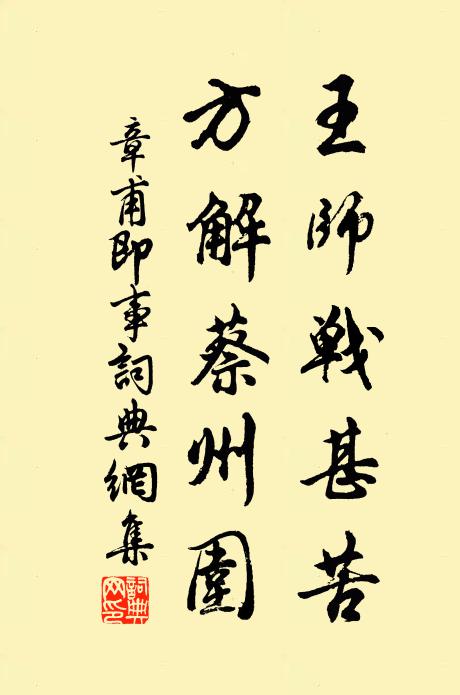 王師戰甚苦
方解蔡州圍
章甫即事詞典網集
詞典網印